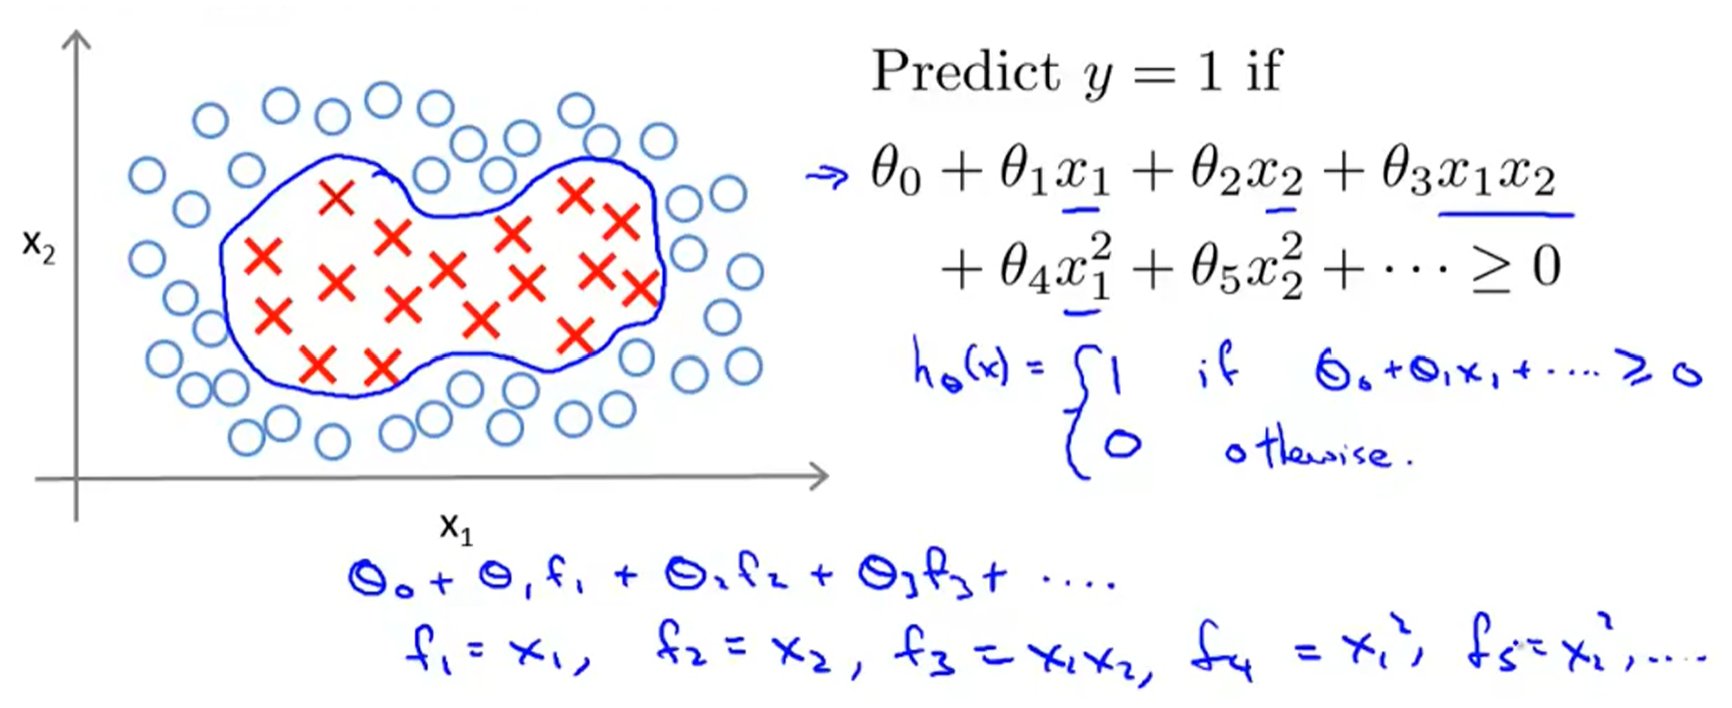 x₂
x₁
Predict y = 1 if
→ θ₀ + θ₁x₁ + θ₂x₂ + θ₃x₁x₂
+ θ₄x₁² + θ₅x₂² + ⋯ ≥ 0
h_θ(x) = { 1 if θ₀ + θ₁x₁ + .... ≥ 0
0 otherwise.
θ₀ + θ₁f₁ + θ₂f₂ + θ₃f₃ + ....
f₁ = x₁, f₂ = x₂, f₃ = x₁x₂, f₄ = x₁², f₅ = x₂², ....